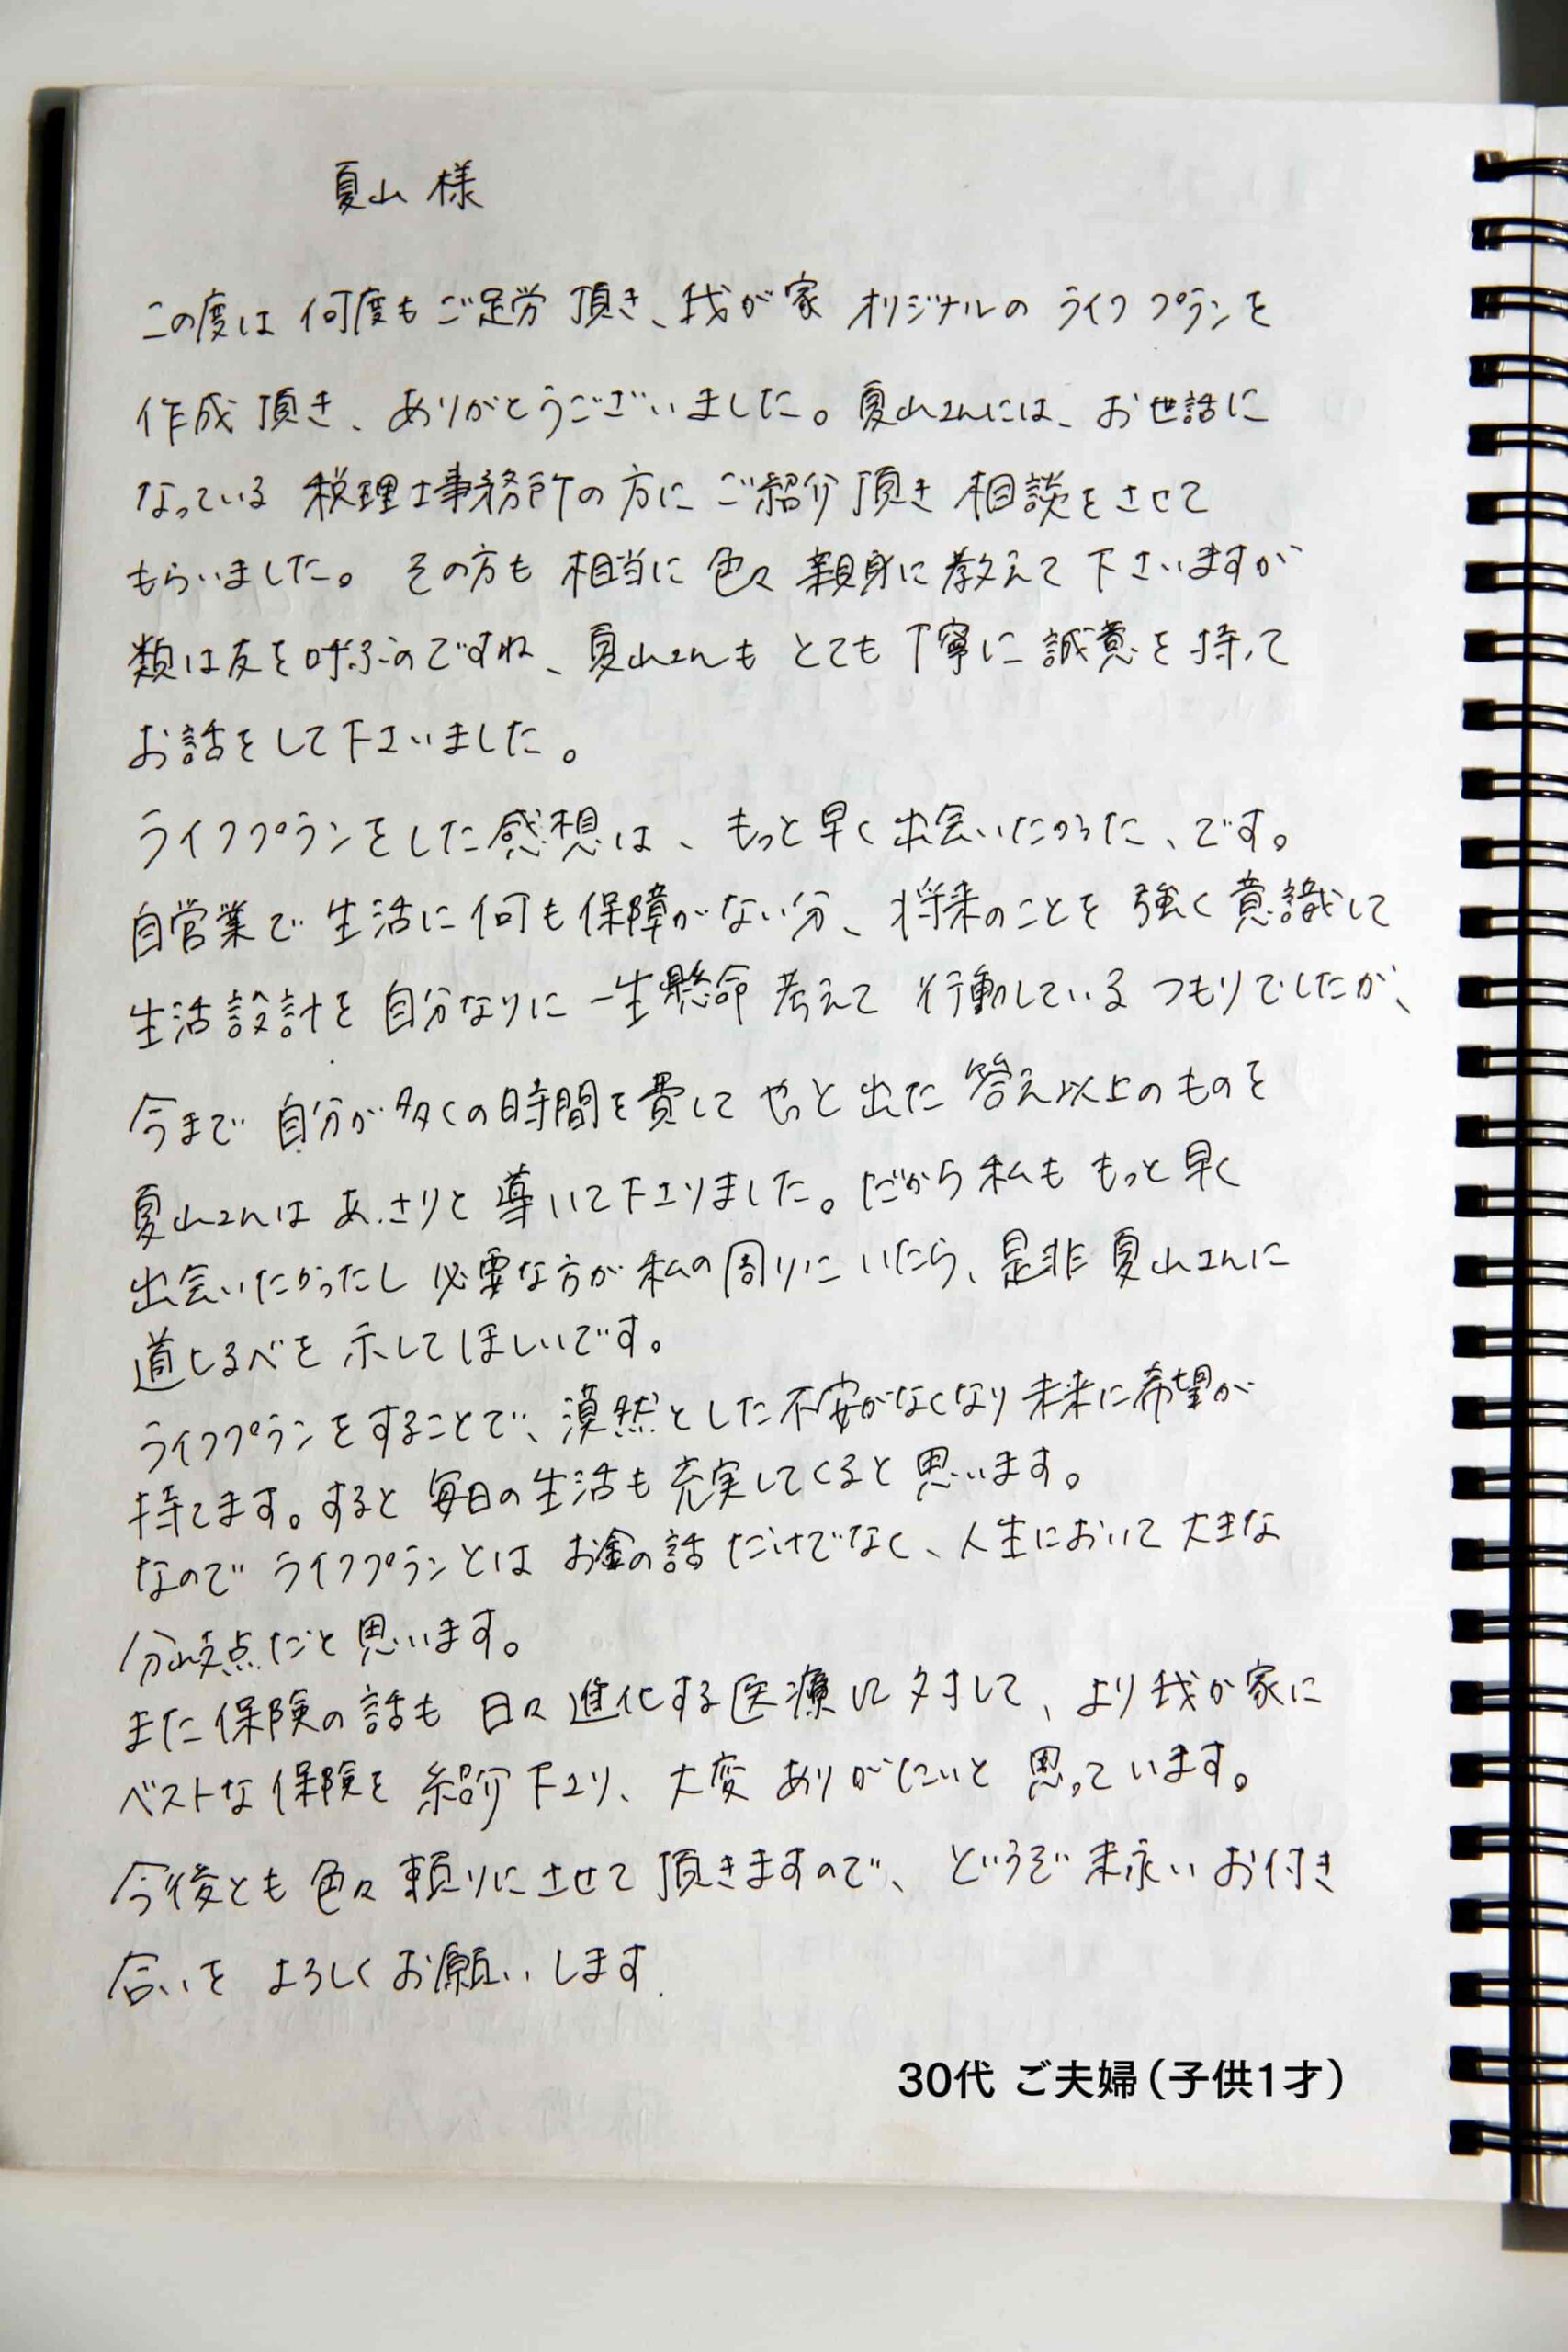 夏山 様
この度は 何度も ご足労 頂き、我が家 オリジナルの ライフプランを
作成 頂き、ありがとうございました。夏山さんには、お世話に
なっている 税理士事務所の 方に ご紹介 頂き 相談をさせて
もらいました。 その方も 相当に 色々 親身に 教えて 下さいますが
類は友を呼ぶのですね、夏山さんも とても 丁寧に 誠意を 持って
お話をして下さいました。
ライフプランをした感想は、もっと早く出会いたかった、です。
自営業で 生活に 何も保障がない分、将来のことを 強く意識して
生活設計を 自分なりに 一生懸命 考えて 行動している つもりでしたが、
今まで 自分が多くの時間を費して やっと出た 答え以上のものを
夏山さんは あっさりと 導いて下さりました。だから 私も もっと早く
出会いたかったし 必要な方が 私の周りに いたら、是非 夏山さんに
道しるべを 示してほしいです。
ライフプランをすることで、漠然とした不安がなくなり未来に希望が
持てます。すると 毎日の生活も 充実してくると思います。
なので ライフプランとは お金の話 だけでなく、人生において 大きな
分岐点だと思います。
また保険の話も 日々 進化する医療に対して、より我が家に
ベストな保険を 紹介下さり、大変 ありがたいと 思っています。
今後とも 色々 頼りにさせて 頂きますので、どうぞ 末永い お付き
合いを よろしくお願いします.
30代 ご夫婦（子供1才）